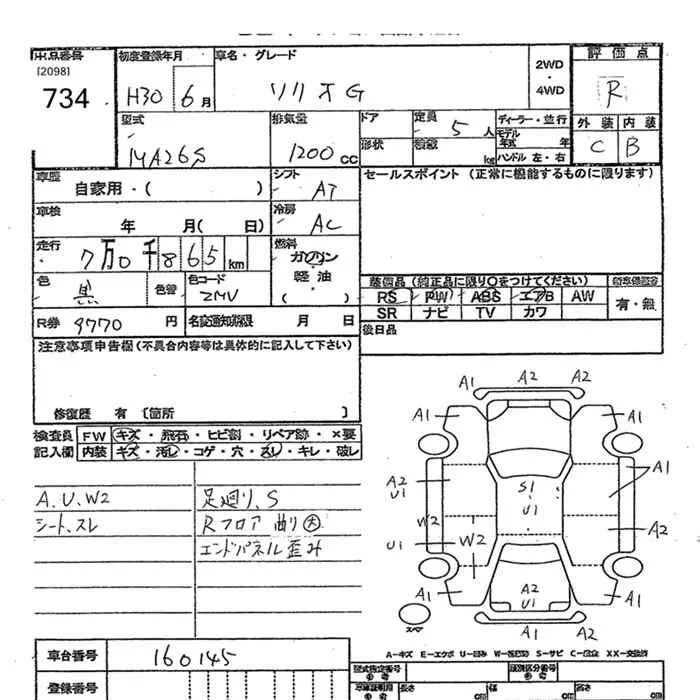 出品番号
[2098]
734
初度登録年月
H30 6月
車名・グレード
ソリオG
2WD
・
4WD
評価点
R
外装 内装
C B
型式
MA26S
排気量
1200cc
ドア
形状
定員
5人
積載
kg
ディーラー・並行
モデル
年式 年
ハンドル 左・右
車歴
自家用・( )
シフト
AT
車検
年 月( 日)
冷房
AC
走行
7万0千865km
燃料
ガソリン
軽油
( )
色
黒
色替
色コード
ZMV
R券 9770円
名変通知期限 月 日
セールスポイント(正常に機能するものに限ります)
装備品(純正品に限り○をつけてください)
RS PW ABS エアB AW
SR ナビ TV カワ
有・無
後日品
注意事項申告欄(不具合内容等は具体的に記入して下さい)
修復歴 有 〔箇所 〕
検査員
記入欄
FW キズ・飛石・ヒビ割・リペア跡・×要
内装 キズ・汚レ・コゲ・穴・スレ・キレ・破レ
A.U.W2
シート.スレ
足廻り.S
Rフロア曲り大
エンドパネル歪み
A1 A2 A2
A1 A1
A2
U1
S1
U1
A1
W2 W2 A2
U1
A2
U1
A1 A1
A1 A2
スペア
A-キズ E-エクボ U-凹み W-補修跡 S-サビ C-腐食 XX-交換済
車台番号 160145
登録番号
型式指定番号
類別区分番号
長さ cm 幅 cm 高さ cm